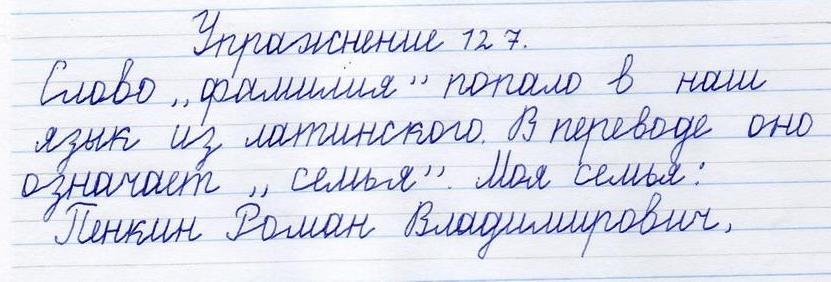 Упражнение 127.
Слово „фамилия" попало в наш
язык из латинского. В переводе оно
означает „семья". Моя семья:
Пенкин Роман Владимирович,